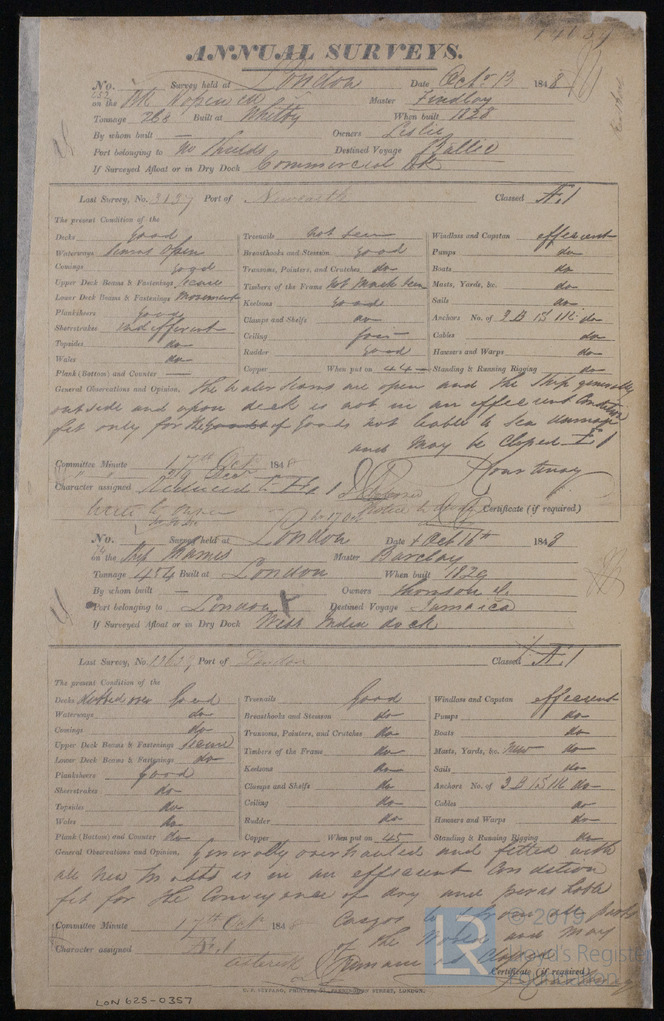 ANNUAL SURVEYS.
No. Survey held at London Date Octr 13 1848
on the Bk Master Findlay
Tonnage 263 Built at Whitby When built 1828
By whom built — Owners Leslie
Port belonging to No Shields Destined Voyage Baltic
If Surveyed Afloat or in Dry Dock Commercial Dk
Last Survey, No. 3137 Port of Newcastle Classed Æ.1
The present Condition of the
Decks good Treenails not seen Windlass and Capstan effecient
Waterways seams open Breasthooks and Stemson Good Pumps do
Comings good Transoms, Pointers, and Crutches do Boats do
Upper Deck Beams & Fastenings Secure Timbers of the Frame not much seen Masts, Yards, &c. do
Lower Deck Beams & Fastenings Keelsons Good Sails do
Planksheers good Clamps and Shelfs do Anchors No. of 3 B 1 S 1 K do
Sheerstrakes indifferent Ceiling Cables do
Topsides do Rudder Good Hawsers and Warps do
Wales do Copper When put on 44 Standing & Running Rigging do
Plank (Bottom) and Counter —
General Observations and Opinion, The Water seams are open and the Ship generally
outside and upon deck is not in an effecient Condition
fit only for the of Goods not liable to Sea damage
and may be Classed Æ 1
Courtenay
Committee Minute 17th Oct 1848
Character assigned Reduced to
Write to owner Certificate (if required)
No. Survey held at London Date Octr 16th 1848
on the Ship Master Barclay
Tonnage 454 Built at London When built 1829
By whom built — Owners Thomson &
Port belonging to London Destined Voyage Jamaica
If Surveyed Afloat or in Dry Dock West India dock
Last Survey, No. 13639 Port of London Classed Æ.1
The present Condition of the
Decks over Good Treenails Good Windlass and Capstan effecient
Waterways do Breasthooks and Stemson do Pumps do
Comings do Transoms, Pointers, and Crutches do Boats do
Upper Deck Beams & Fastenings Secure Timbers of the Frame do Masts, Yards, &c. New do
Lower Deck Beams & Fastenings do Keelsons do Sails do
Planksheers good Clamps and Shelfs do Anchors No. of 3 B 1 S 1 K do
Sheerstrakes do Ceiling do Cables do
Topsides do Rudder do Hawsers and Warps do
Wales do Copper When put on 45 Standing & Running Rigging do
Plank (Bottom) and Counter do
General Observations and Opinion, Generally overhauled and fitted with
all new Masts is in an effecient Condition
fit for the Conveyance of dry and perishable
Cargos to & from all parts
of the World and may
Committee Minute 17th Oct 1848
Character assigned Æ.1
Remain as Classed
Certificate (if required)
Courtenay
© 2019
LR Lloyd's Register
Foundation
LON 625-0357